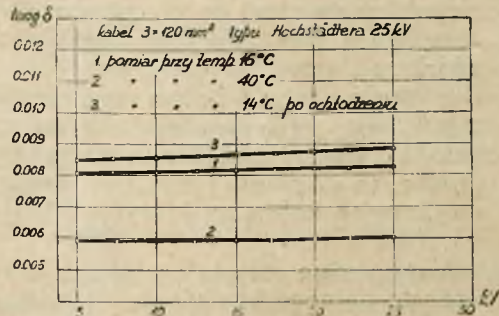 tang δ
kabel 3×120 mm² typu Hochstädtera 25 kV
1. pomiar przy temp. 16°C
2 " " " 40°C
3 " " " 14°C po ochłodzeniu
0.012
0.011
0.010
0.009
0.008
0.007
0.006
0.005
3
1
2
5 10 15 20 25 kV